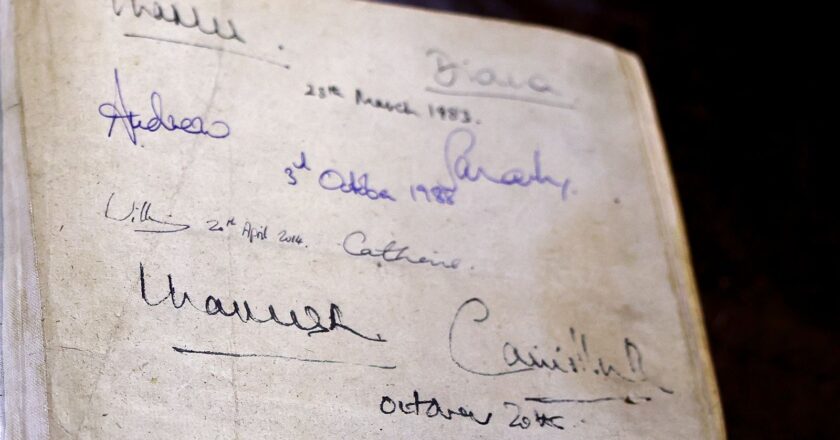 Charles. Diana
28th March 1983.
Andrew Sarah.
3rd October 1988
William 20th April 2014. Catherine.
Charles R. Camilla R
October